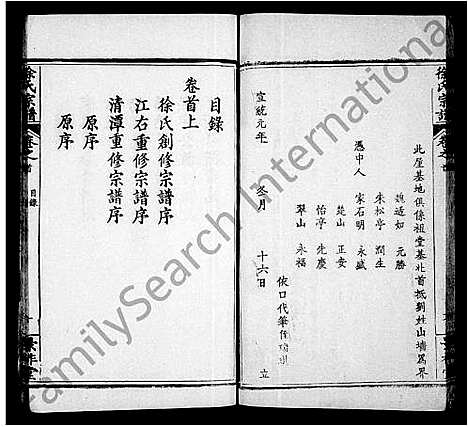 徐氏宗譜
卷之首
此屋基地俱係祖堂基北首抵劉姓山墻為界
魏適如 元勝
朱松亭 潤生
憑中人 家石明 永盛
楚山 正安
怡亭 先慶
翠山 永福
宣統元年 冬月 十六日 依口代筆 立
目錄
卷首上
徐氏創修宗譜序
江右重修宗譜序
清潭重修宗譜序
原序
原序
徐氏宗譜
卷之首
目錄
FamilySearch International